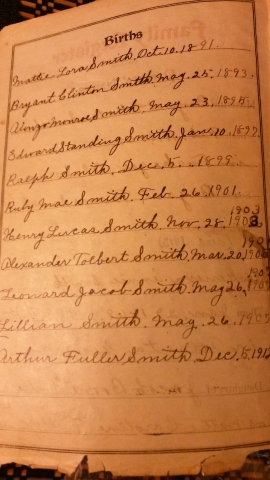 Births
Mattie Lora Smith, Oct. 10. 1891.
Bryant Clinton Smith. May. 25. 1893.
Alonzo Monroe Smith. May. 23. 1895.
Edward Standing Smith. Jan. 10. 1897.
Ralph Smith. Dec. 5. 1899.
Ruby Mae Smith. Feb. 26, 1901.
1903
Henry Lucas Smith. Nov. 28.
Alexander Tolbert Smith. Mar. 20,
Leonard Jacob Smith. May 26,
Lillian Smith. May. 26.
Arthur Fuller Smith, Dec. 5. 1912